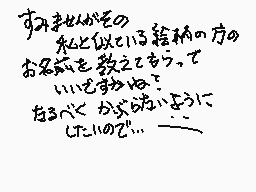 すみませんがその
私と似ている絵柄の方の
お名前を教えてもらって
いいですかね?
なるべくかぶらないように
したいので…